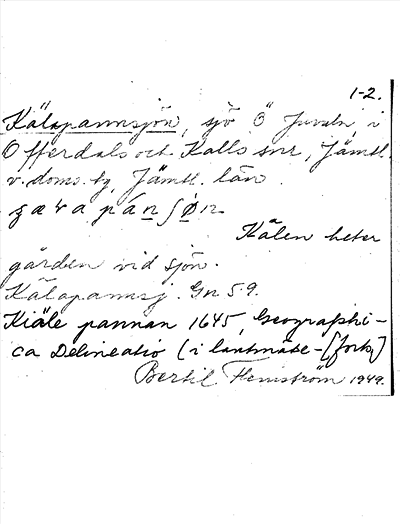 1-2.
Kälapannsjön, sjö Ö Juvuln, i
Offerdals och Kalls snr, Jämtl.
v. doms. tg, Jämtl. län.
Kälen heter
gården vid sjön.
Kälapannsj. Gn 59.
Kiäle pannan 1645, Geographi-
ca Delineatio (i lantmäte-[fork.]
Bertil Flemström 1949.